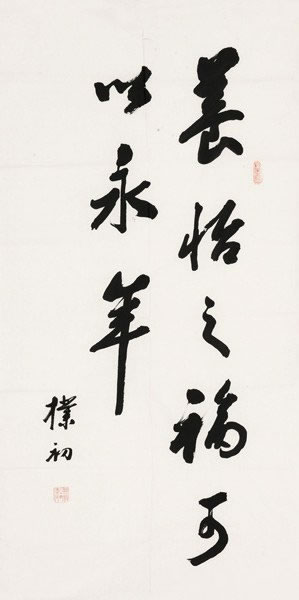 养怡之福可
以永年
樸初